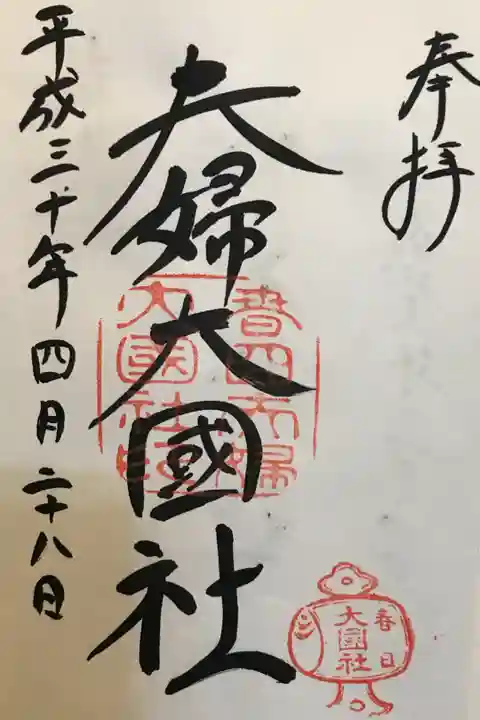 奉拝
夫婦大國社
春日夫婦
大國社印
春日
大國社
平成三十年四月二十八日